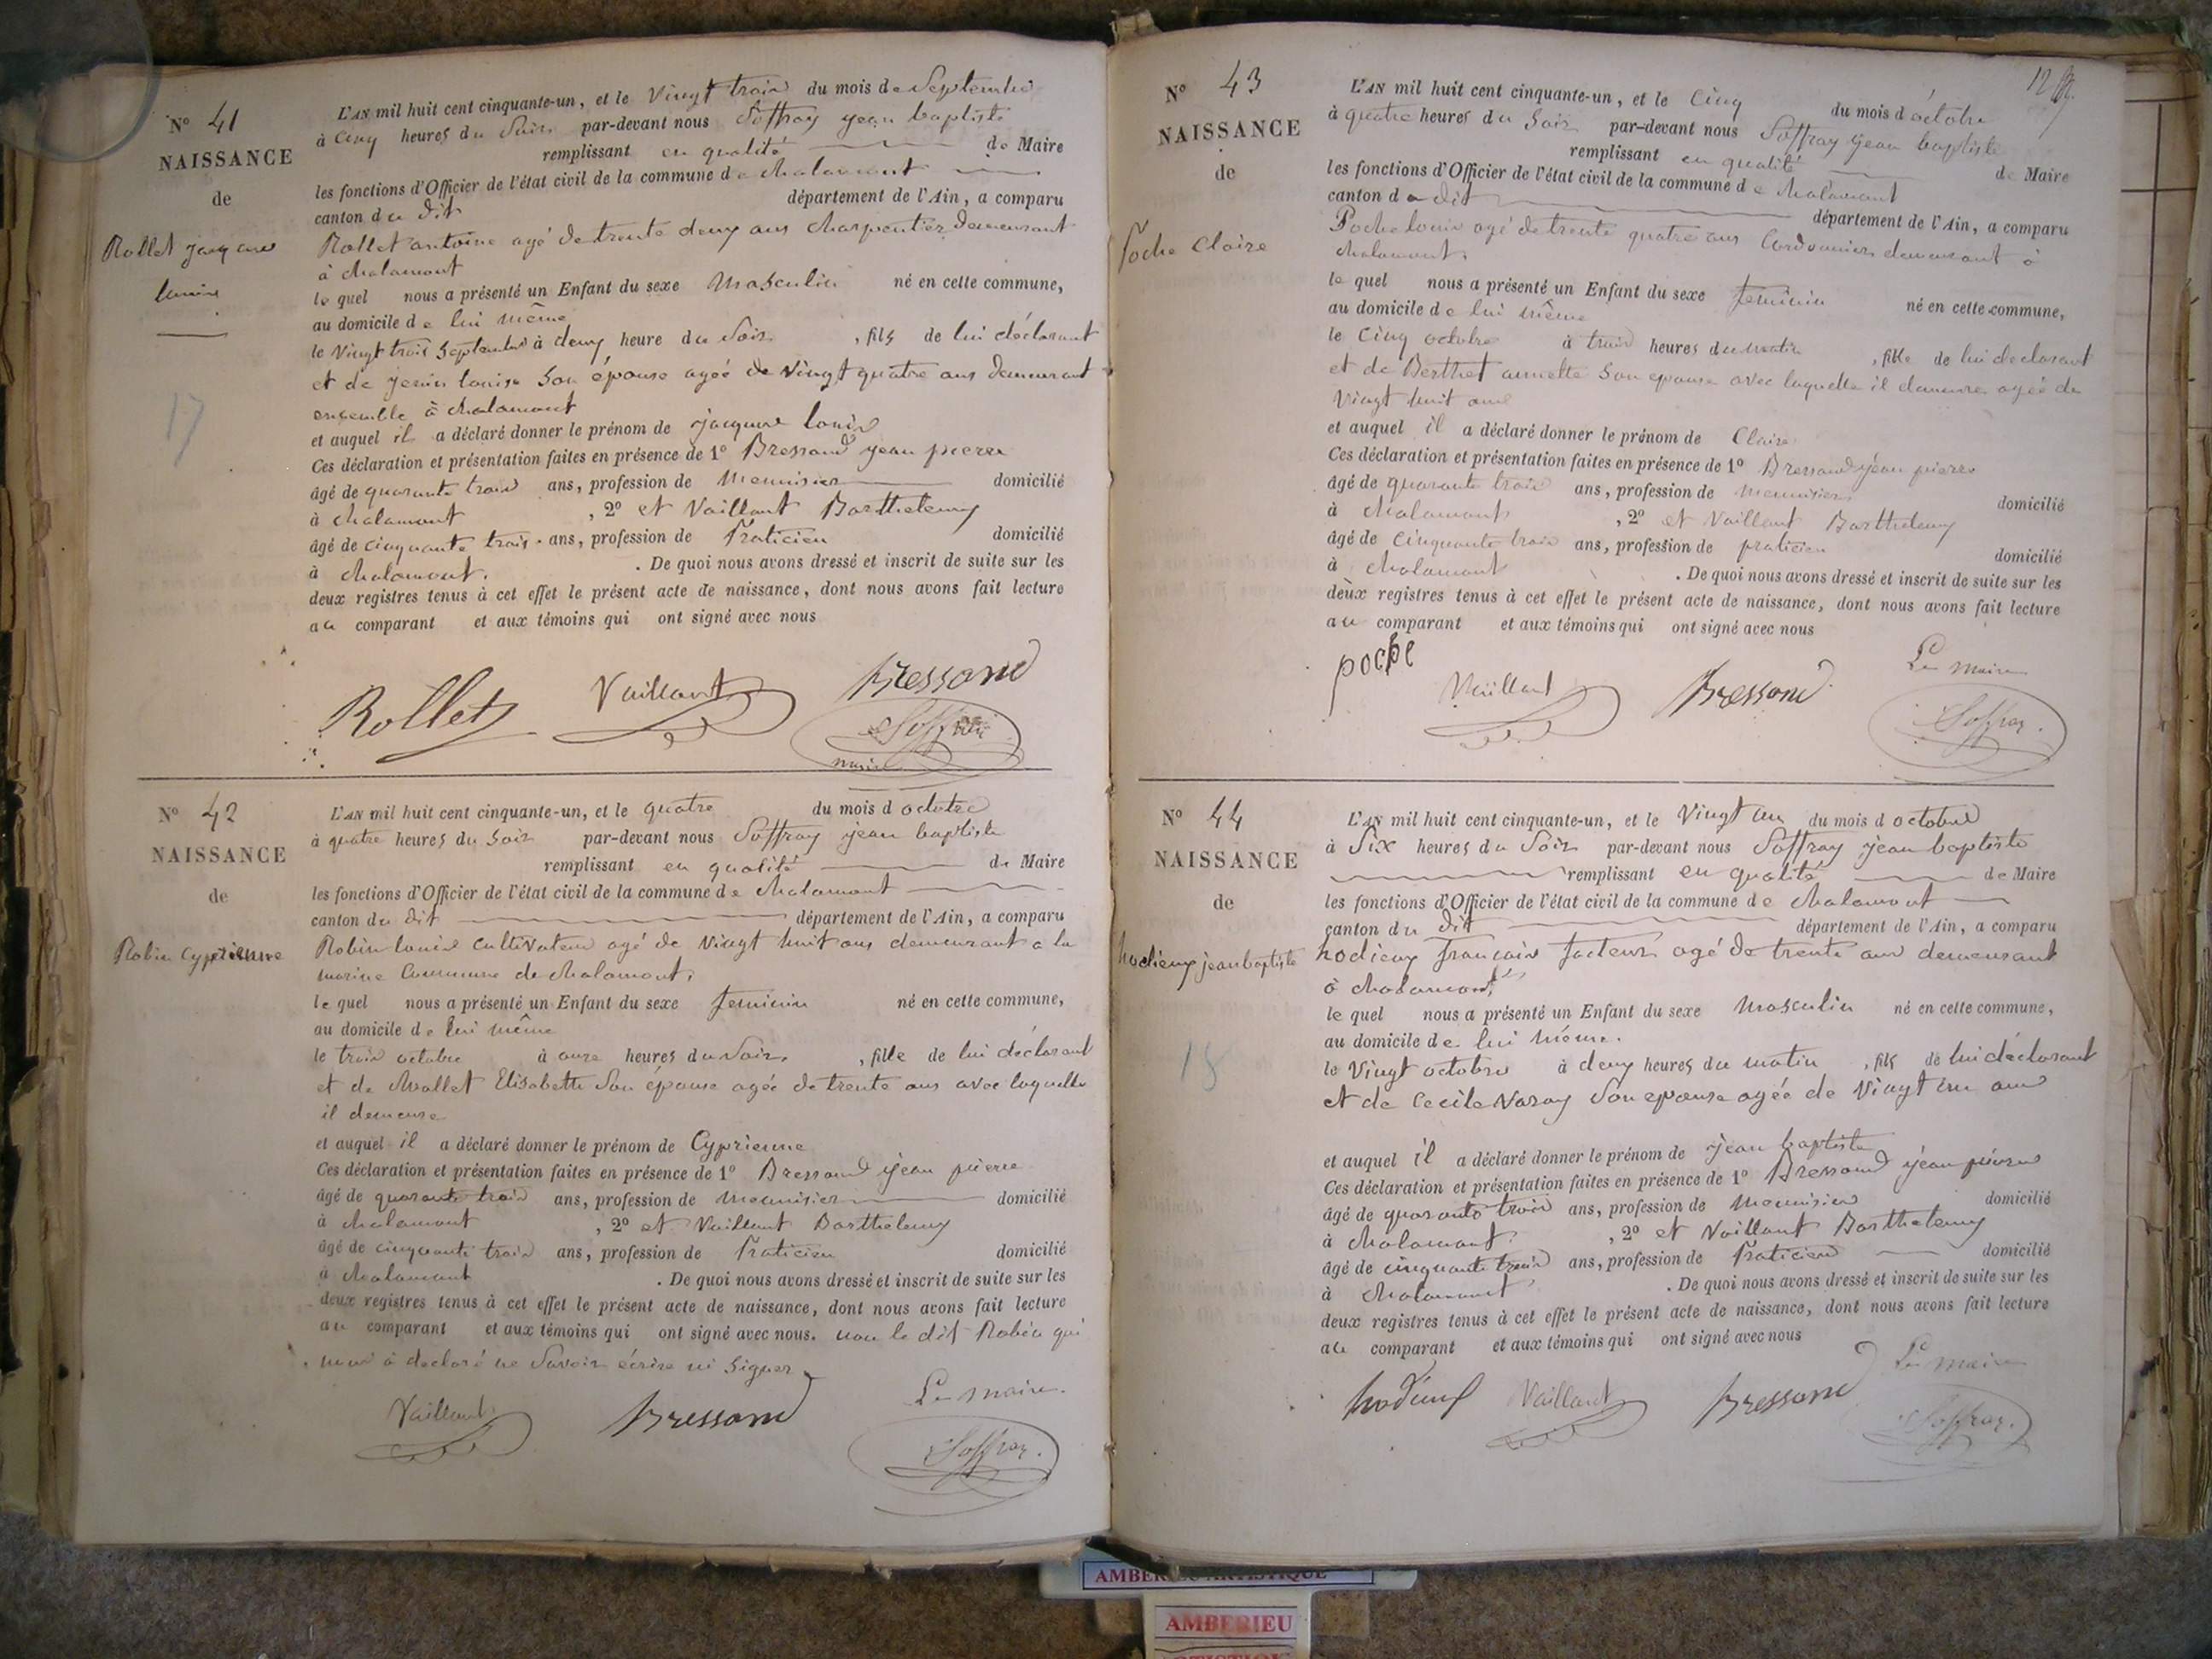 N° 41
NAISSANCE
de
Rollet jacques
louis
17
L'AN mil huit cent cinquante-un, et le Vingt trois du mois de Septembre
à Cinq heures du Soir par-devant nous Soffray jean baptiste
remplissant en qualité de Maire
les fonctions d'Officier de l'état civil de la commune de chalamont
canton du dit département de l'Ain, a comparu
Rollet antoine agé de trente deux ans charpentier demeurant
à chalamont
le quel nous a présenté un Enfant du sexe Masculin né en cette commune,
au domicile de lui même
le Vingt trois Septembre à deux heure du Soir , fils de lui déclarant
et de jenin louise Son épouse agée de Vingt quatre ans demeurant
ensemble à chalamont
et auquel il a déclaré donner le prénom de jacques louis
Ces déclaration et présentation faites en présence de 1° Bressand jean pierre
âgé de quarante trois ans, profession de Menuisier domicilié
à chalamont , 2° et Vaillant Barthelemy
âgé de cinquante trois ans, profession de Praticien domicilié
à chalamont. . De quoi nous avons dressé et inscrit de suite sur les
deux registres tenus à cet effet le présent acte de naissance, dont nous avons fait lecture
au comparant et aux témoins qui ont signé avec nous
Rollet Vaillant Bressand
Soffray
maire
N° 42
NAISSANCE
de
Robin Cyprienne
L'AN mil huit cent cinquante-un, et le quatre du mois d octobre
à quatre heures du Soir par-devant nous Soffray jean baptiste
remplissant en qualité de Maire
les fonctions d'Officier de l'état civil de la commune de chalamont
canton du dit département de l'Ain, a comparu
Robin louis cultivateur agé de Vingt huit ans demeurant a la
marine Commune de chalamont,
le quel nous a présenté un Enfant du sexe feminin né en cette commune,
au domicile de lui même
le trois octobre à onze heures du Soir, , fille de lui déclarant
et de Mollet Elisabeth Son épouse agée de trente ans avec laquelle
il demeure
et auquel il a déclaré donner le prénom de Cyprienne
Ces déclaration et présentation faites en présence de 1° Bressand jean pierre
âgé de quarante trois ans, profession de menuisier domicilié
à chalamont , 2° et Vaillant Barthelemy
âgé de cinquante trois ans, profession de Praticien domicilié
à chalamont . De quoi nous avons dressé et inscrit de suite sur les
deux registres tenus à cet effet le présent acte de naissance, dont nous avons fait lecture
au comparant et aux témoins qui ont signé avec nous. non le dit Robin qui
nous à declaré ne Savoir écrire ni Signer
Vaillant Bressand Le maire
Soffray.
N° 43
NAISSANCE
de
Poche Claire
L'AN mil huit cent cinquante-un, et le Cinq du mois d'octobre
à quatre heures du Soir par-devant nous Soffray jean baptiste
remplissant en qualité de Maire
les fonctions d'Officier de l'état civil de la commune de chalamont
canton du dit département de l'Ain, a comparu
Poche louis agé de trente quatre ans Cordonnier demeurant à
chalamont.
le quel nous a présenté un Enfant du sexe feminin né en cette commune,
au domicile de lui même
le Cinq octobre à trois heures du matin , fille de lui declarant
et de Berthet annette Son epouse avec laquelle il demeure agée de
Vingt huit ans
et auquel il a déclaré donner le prénom de Claire
Ces déclaration et présentation faites en présence de 1° Bressand jean pierre
âgé de quarante trois ans, profession de menuisier domicilié
à chalamont , 2° et Vaillant Barthelemy
âgé de Cinquante trois ans, profession de praticien domicilié
à chalamont . De quoi nous avons dressé et inscrit de suite sur les
deux registres tenus à cet effet le présent acte de naissance, dont nous avons fait lecture
au comparant et aux témoins qui ont signé avec nous
poche Vaillant Bressand Le maire
Soffray.
N° 44
NAISSANCE
de
hodieux jean baptiste
18
L'AN mil huit cent cinquante-un, et le Vingt un du mois d octobre
à Six heures du Soir par-devant nous Soffray jean baptiste
remplissant en qualité de Maire
les fonctions d'Officier de l'état civil de la commune de chalamont
canton du dit département de l'Ain, a comparu
hodieux françois facteur agé de trente ans demeurant
à chalamont,
le quel nous a présenté un Enfant du sexe Masculin né en cette commune,
au domicile de lui même.
le Vingt octobre à deux heures du matin , fils de lui déclarant
et de Cecile Varay Son epouse agée de Vingt un ans
et auquel il a déclaré donner le prénom de jean baptiste
Ces déclaration et présentation faites en présence de 1° Bressand jean pierre
âgé de quarante trois ans, profession de Menuisier domicilié
à chalamont , 2° et Vaillant Barthelemy
âgé de cinquante trois ans, profession de Praticien domicilié
à chalamont . De quoi nous avons dressé et inscrit de suite sur les
deux registres tenus à cet effet le présent acte de naissance, dont nous avons fait lecture
au comparant et aux témoins qui ont signé avec nous
hodieux Vaillant Bressand Le maire
Soffray.
AMBERIEU ARTISTIQUE
AMBERIEU
ARTISTIQUE